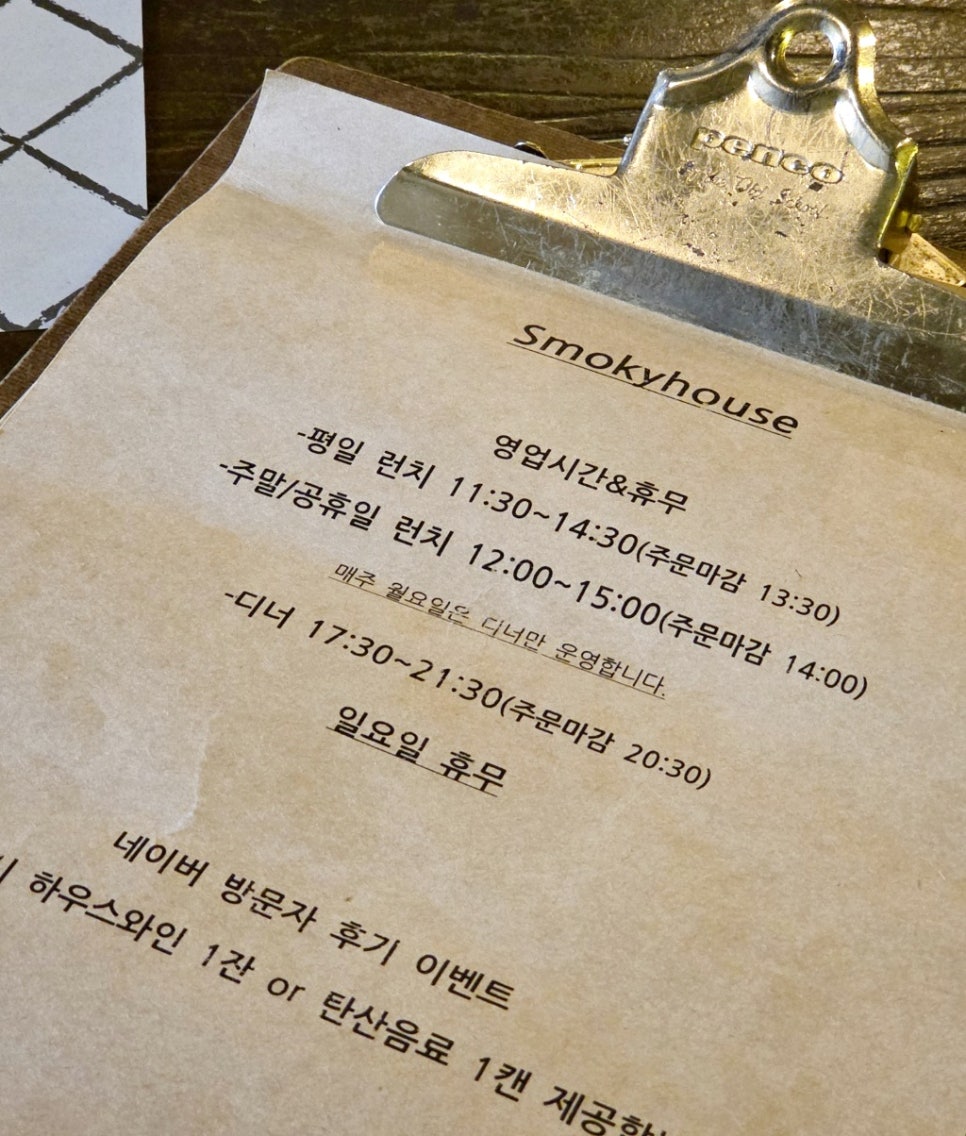 penco
Smokyhouse
영업시간&휴무
-평일 런치 11:30~14:30(주문마감 13:30)
-주말/공휴일 런치 12:00~15:00(주문마감 14:00)
매주 월요일은 디너만 운영합니다.
-디너 17:30~21:30(주문마감 20:30)
일요일 휴무
네이버 방문자 후기 이벤트
하우스와인 1잔 or 탄산음료 1캔